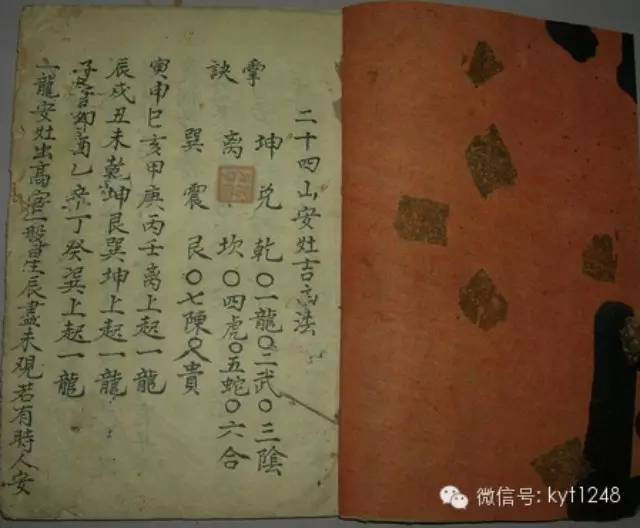 二十四山安灶吉凶法
掌訣
坤兑乾〇一龍〇二武〇三陰
离 坎〇四虎〇五蛇〇六合
巽震艮〇七陳〇八貴
寅申巳亥甲庚丙壬離上起一龍
辰戌丑未乾坤艮巽坤上起一龍
子午卯酉乙辛丁癸巽上起一龍
一龍安灶出高官 星辰盡未觀若有時人安
微信号: kyt1248